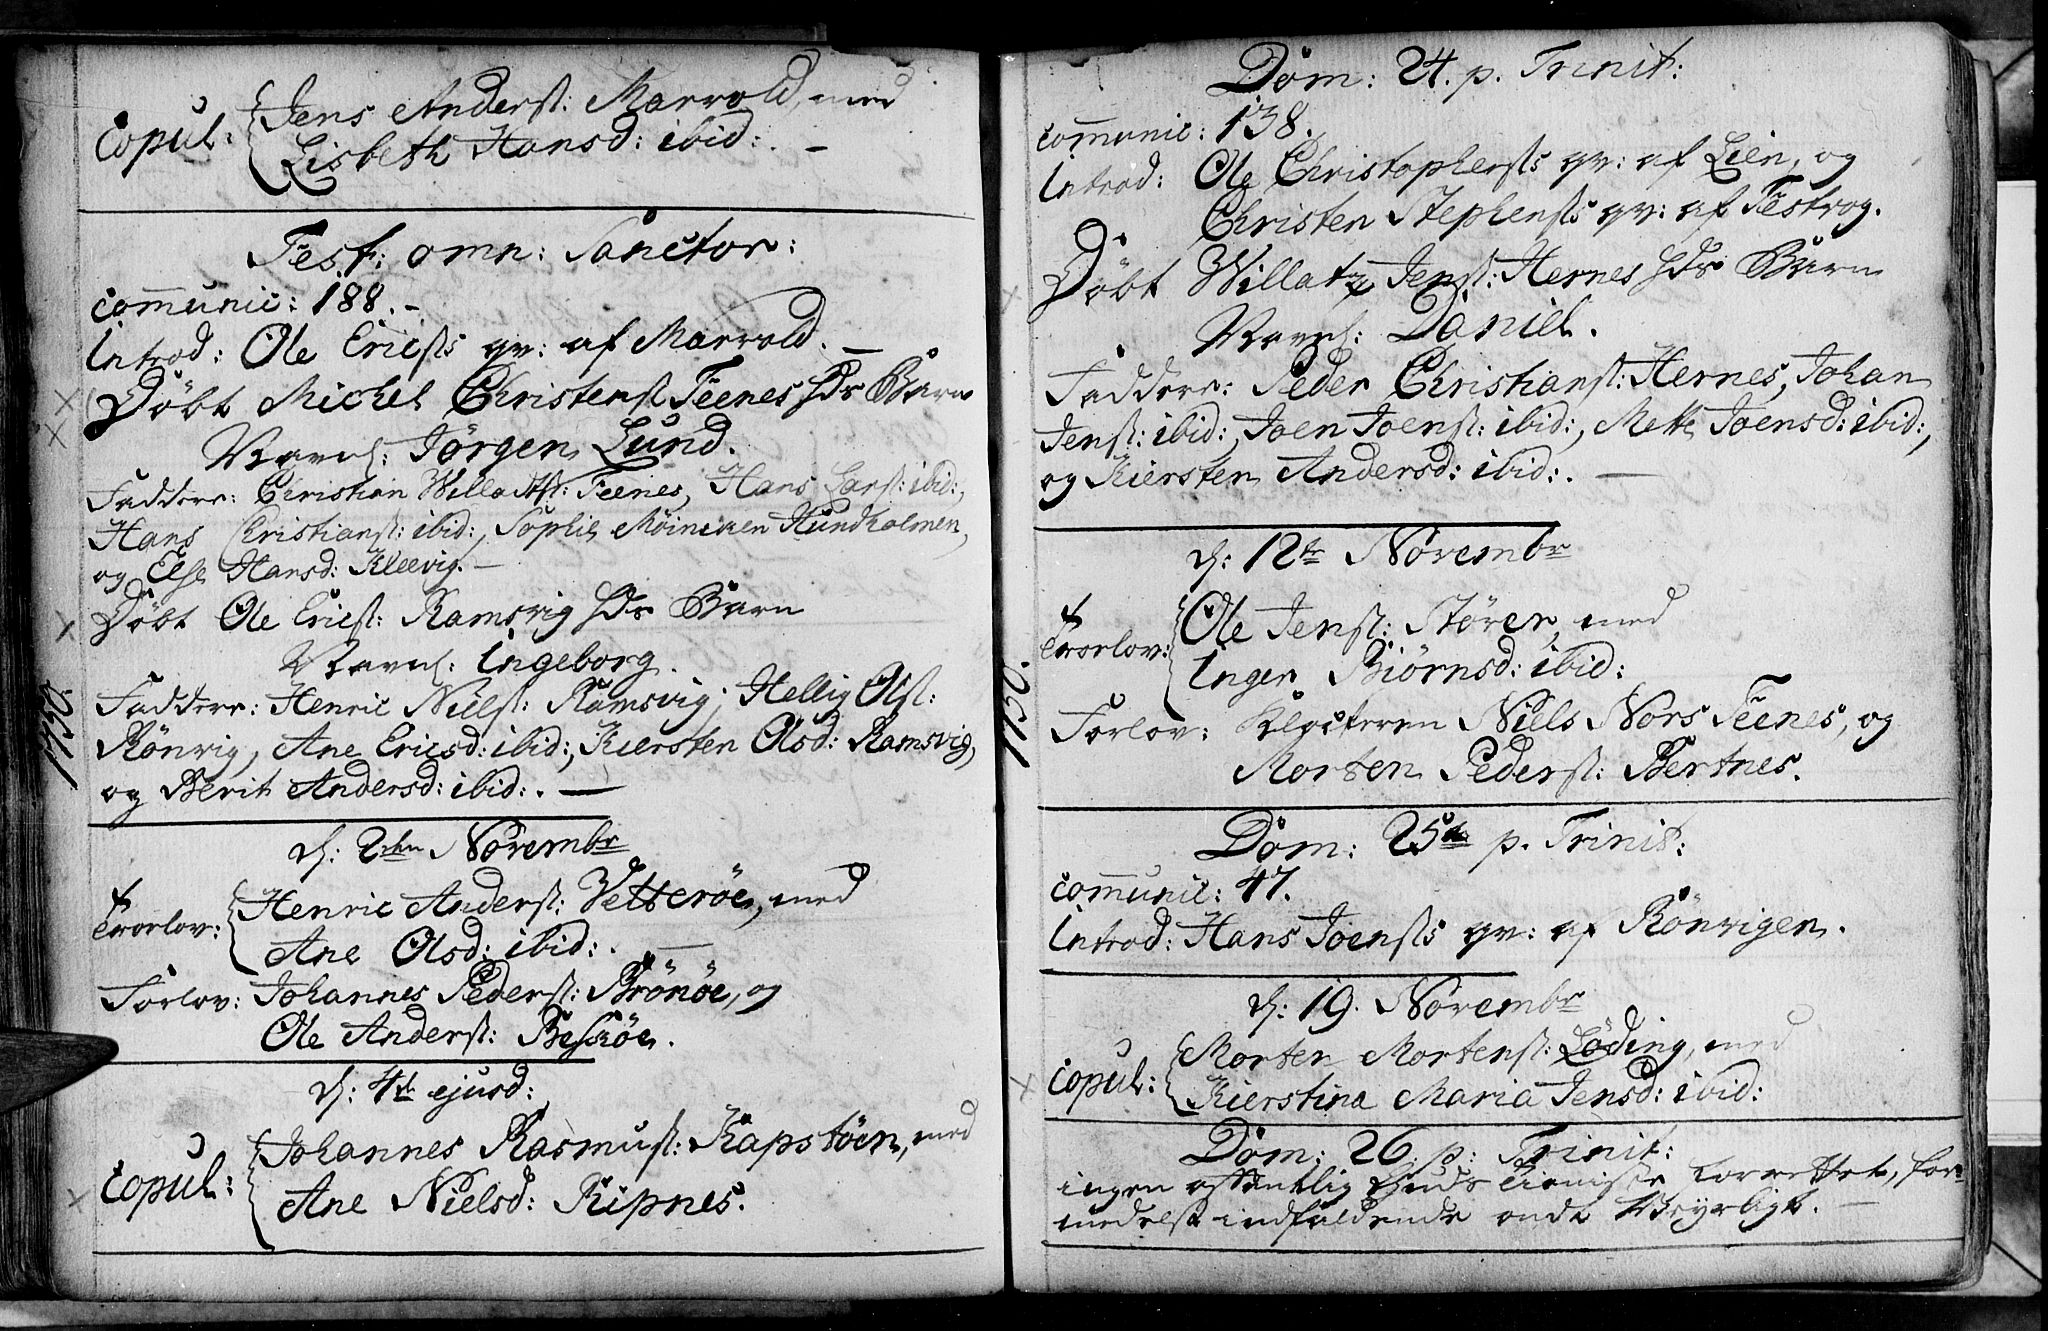 Copul: Jens Anderss: Marvold, med
Lisbeth Hansd: ibid: . –
Fest: omn: Sanctor:
Communic: 188. –
Introd: Ole Ericss qv: af Marvold. –
Døbt Michel Christenss: Feenes hds Barn
Navnl: Jørgen Lund.
Faddere: Christian Willadss: Feenes, Hans Larss: ibid:,
Hans Christianss: ibid:, Sophie Møiniken Hundholmen,
og Else Hansd: Kleevig. –
Døbt Ole Ericss: Ramsvig hds Barn
Navnl: Ingeborg.
1750.
Faddere: Henric Nielss: Ramsvig, Hellig Olss:
Rønvig, Ane Ericsd: ibid:, Kiersten Olsd: Ramsvig,
og Berit Andersd: ibid: . –
d: 2den Novembr
Trorlov: Henric Anderss: Vetterøe, med
Ane Olsd: ibid: .
Forlov: Johannes Pederss: Brønøe, og
Ole Anderss: Beskøe.
d: 4de ejusd:
Copul: Johannes Rasmuss: Kapstøen, med
Ane Nielsd: Ripnes.
Dom: 24. p. Trinit:
Communic: 138.
Introd: Ole Christophersts qv: af Lien, og
Christen Stephensts qv: af Festvog.
Døbt Willatz Jenss: Hernes hds Barn
Navnl: Daniel.
Faddere: Peder Christianss: Hernes, Johan
Jenss: ibid:, Joen Joenss: ibid:, Mette Joensd: ibid:,
og Kiersten Andersd: ibid: . –
d: 12te Novembr
Trorlov: Ole Jenss: Støver, med
Inger Biørnsd: ibid:
1750.
Forlov: Klockeren Niels Nors Feenes, og
Morten Pederss: Bertnes.
Dom: 25de p. Trinit:
Communic: 47.
Introd: Hans Joensts qv: af Rønvigen.
d: 19. Novembr
Copul: Morten Mortenss: Løding, med
Kierstina Maria Jensd: ibid:
Dom: 26. p: Trinit:
ingen offentlig Guds Tieniste forrettet, for-
medelst indfaldende ondt Veyrligt. –